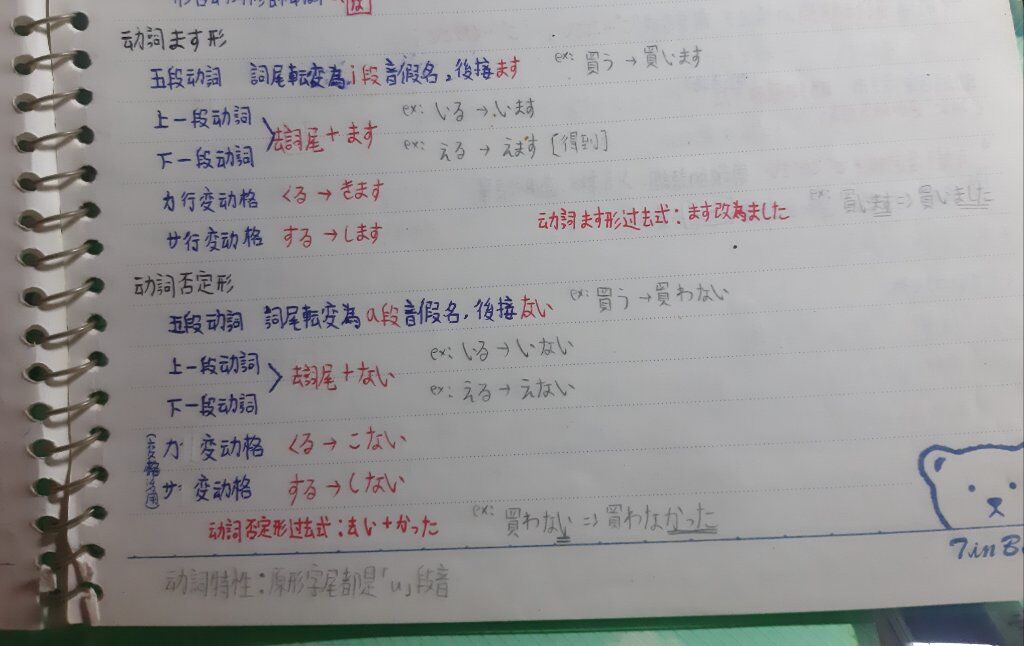 な
动詞ます形
五段动詞 詞尾転変為 i段音假名，後接ます ex: 買う → 買います
上一段动詞 ex: いる → います
去詞尾 + ます
下一段动詞 ex: える → えます [得到]
カ行変动格 くる → きます
サ行変动格 する → します
动詞ます形过去式：ます改為ました ex: 買います => 買いました
动詞否定形
五段动詞 詞尾転変為 a段音假名，後接ない ex: 買う → 買わない
上一段动詞 ex: いる → いない
去詞尾 + ない
下一段动詞 ex: える → えない
カ 変动格 くる → こない
サ 変动格 する → しない
动詞否定形过去式：去い + かった ex: 買わない => 買わなかった
动詞特性：原形字尾都是「u」段音